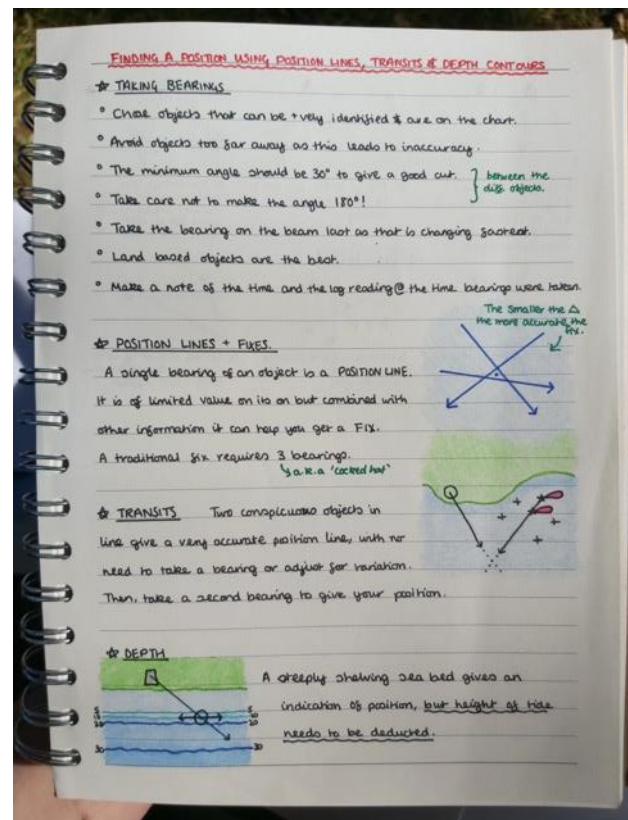 FINDING A POSITION USING POSITION LINES, TRANSITS & DEPTH CONTOURS
☆ TAKING BEARINGS
° Chose objects that can be +vely identified & are on the chart.
° Avoid objects too far away as this leads to inaccuracy.
° The minimum angle should be 30° to give a good cut. } between the
diff. objects.
° Take care not to make the angle 180°!
° Take the bearing on the beam last as that is changing fastest.
° Land based objects are the best.
° Make a note of the time and the log reading @ the time bearings were taken.
The smaller the △
the more accurate the
fix.
☆ POSITION LINES + FIXES.
A single bearing of an object is a POSITION LINE.
It is of limited value on its on but combined with
other information it can help you get a FIX.
A traditional fix requires 3 bearings.
↳ a.k.a 'cocked hat'
☆ TRANSITS Two conspicuous objects in
line give a very accurate position line, with no
need to take a bearing or adjust for variation.
Then, take a second bearing to give your position.
☆ DEPTH
A steeply shelving sea bed gives an
indication of position, but height of tide
needs to be deducted.
5 5
10 10
20 20
30 30